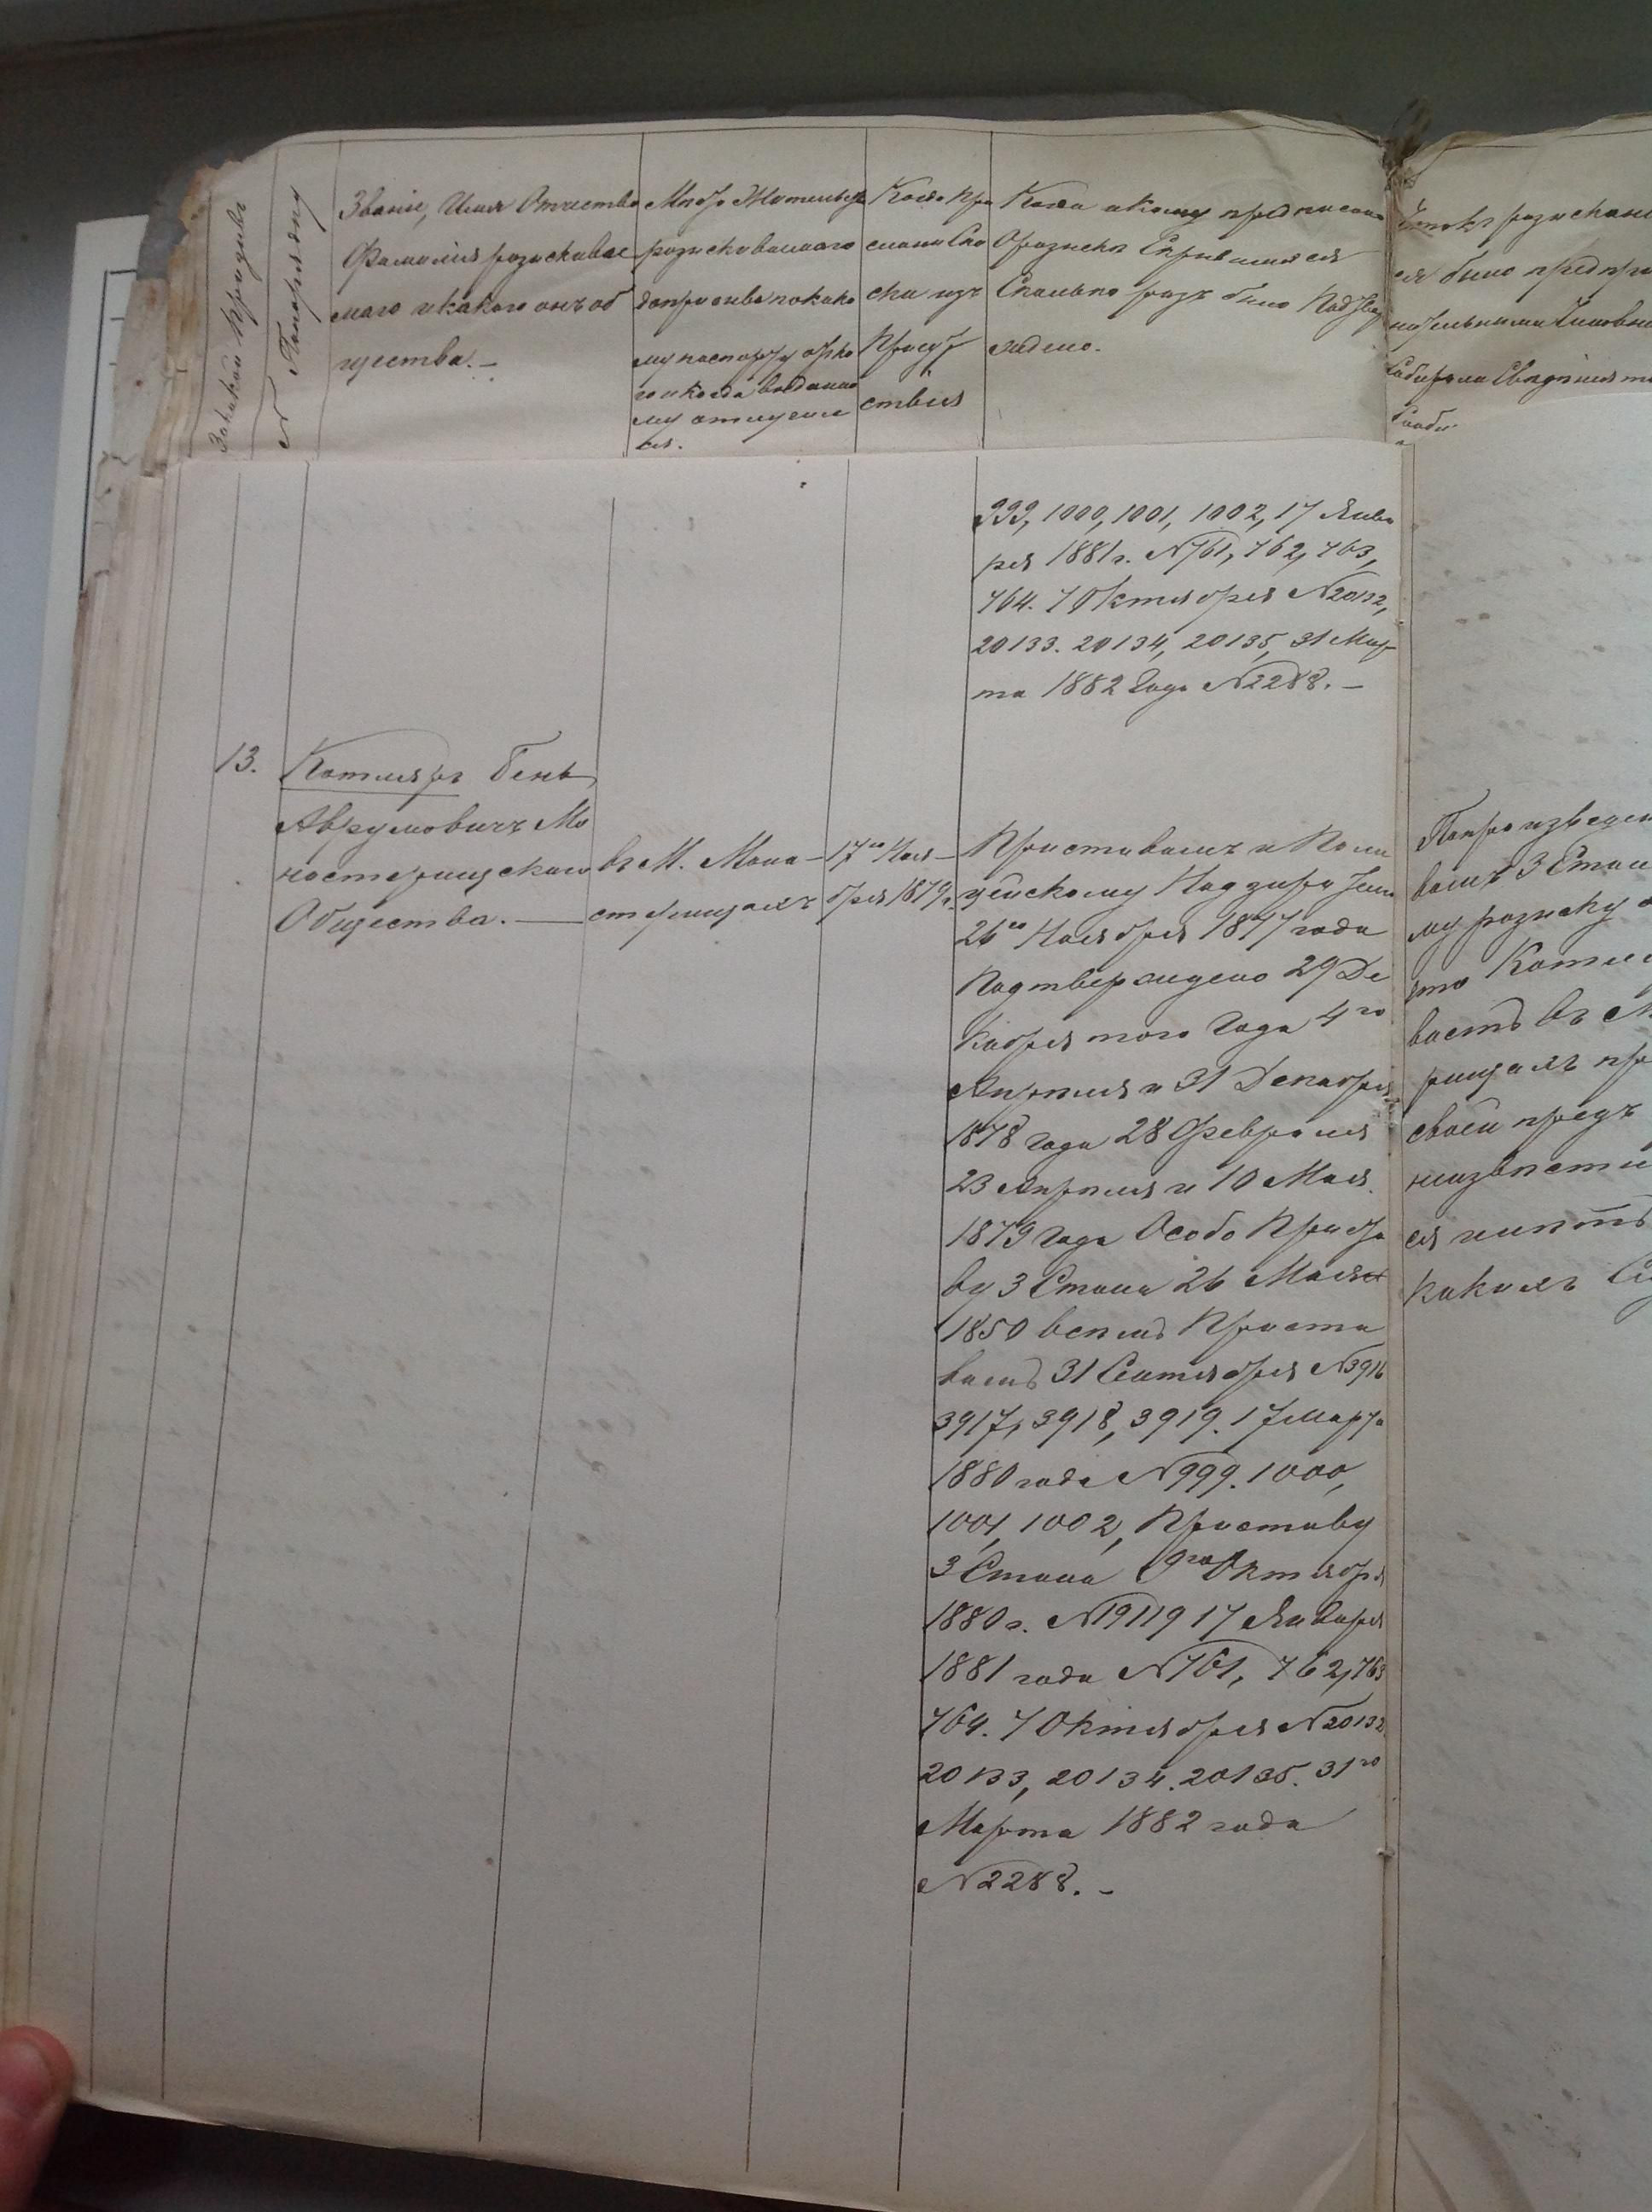 За какой призывъ
№ По порядку
Званіе, Имя Отчество
Фамилія разыскивае
маго и какого онъ об
щества. —
Место Жительства
разыскиваемаго
до призыва по како
му паспорту от ко
го и когда выданно
му отлучил
ся.
Когда При
сланы Спи
ски изъ
Присут
ствія
Когда и кому предписано
О розыске Скрывшихся
Сколько разъ было Подтвер
ждено.
999, 1000, 1001, 1002, 17 Янва
ря 1881 г. № 761, 762, 763,
764. 7 Октября № 20132,
20133. 20134, 20135, 31 Мар
та 1882 Года № 2288. —
13.
Котляръ Бень
Аврумовичъ Мо
настерищскаго
Общества. —
въ М. Мона-
стерищахъ
17го Ноя-
бря 1879 г.
Приставамъ и Поли
цейскому Надзирателю
26го Ноября 1877 года
Подтверждено 29 Де
кабря того Года 4го
Апреля и 31 Декабря
1878 года 28 Февраля
23 Апреля и 10 Мая
1879 Года Особо Приста
ву 3 Стана 26 Мая
1850 всемъ Приста
вамъ 31 Сентября № 3916
3917, 3918, 3919. 17 марта
1880 года № 999. 1000,
1001, 1002, Приставу
3 Стана 9го Октября
1880 г. № 19119 17 Января
1881 года № 761, 762, 763
764. 7 Октября № 20132
20133, 20134. 20135. 31го
Марта 1882 года
№ 2288. —
ся было предпри
По произведен
вамъ 3 Стан
му розыску
что Котля
ваетъ въ М.
рищахъ пр
своей предъ
неизвестн
ся
какихъ